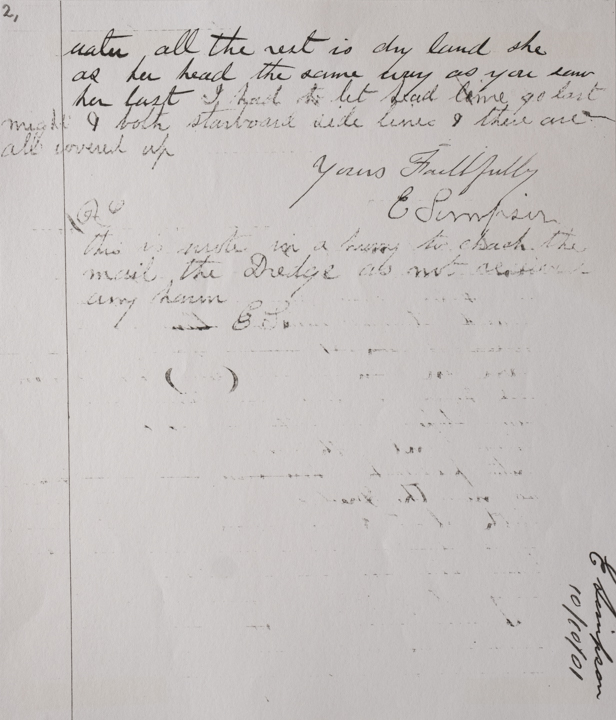 2,
water all the rest is dry land she
as her head the same way as you saw
her last I had to let head line go last
might & both starboard side lines & there are
all covered up
Yours Faithfully
E Simpson
this is wrote in a hurry to chach the
mail the Dredge as not received
any harm
E S
( )
E Simpson
10/10/01